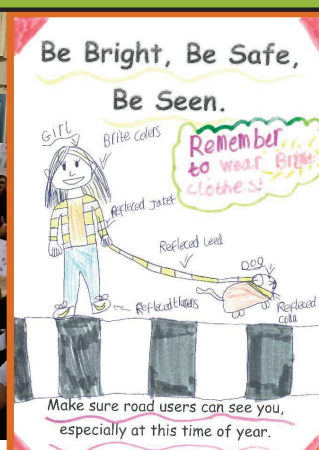 Be Bright, Be Safe,
Be Seen.
GIRL
Brite colers
Remember
to wear Brite
clothes!
Refleced jatet
Refleced leed
DOG
Refleced
colla
Make sure road users can see you,
especially at this time of year.